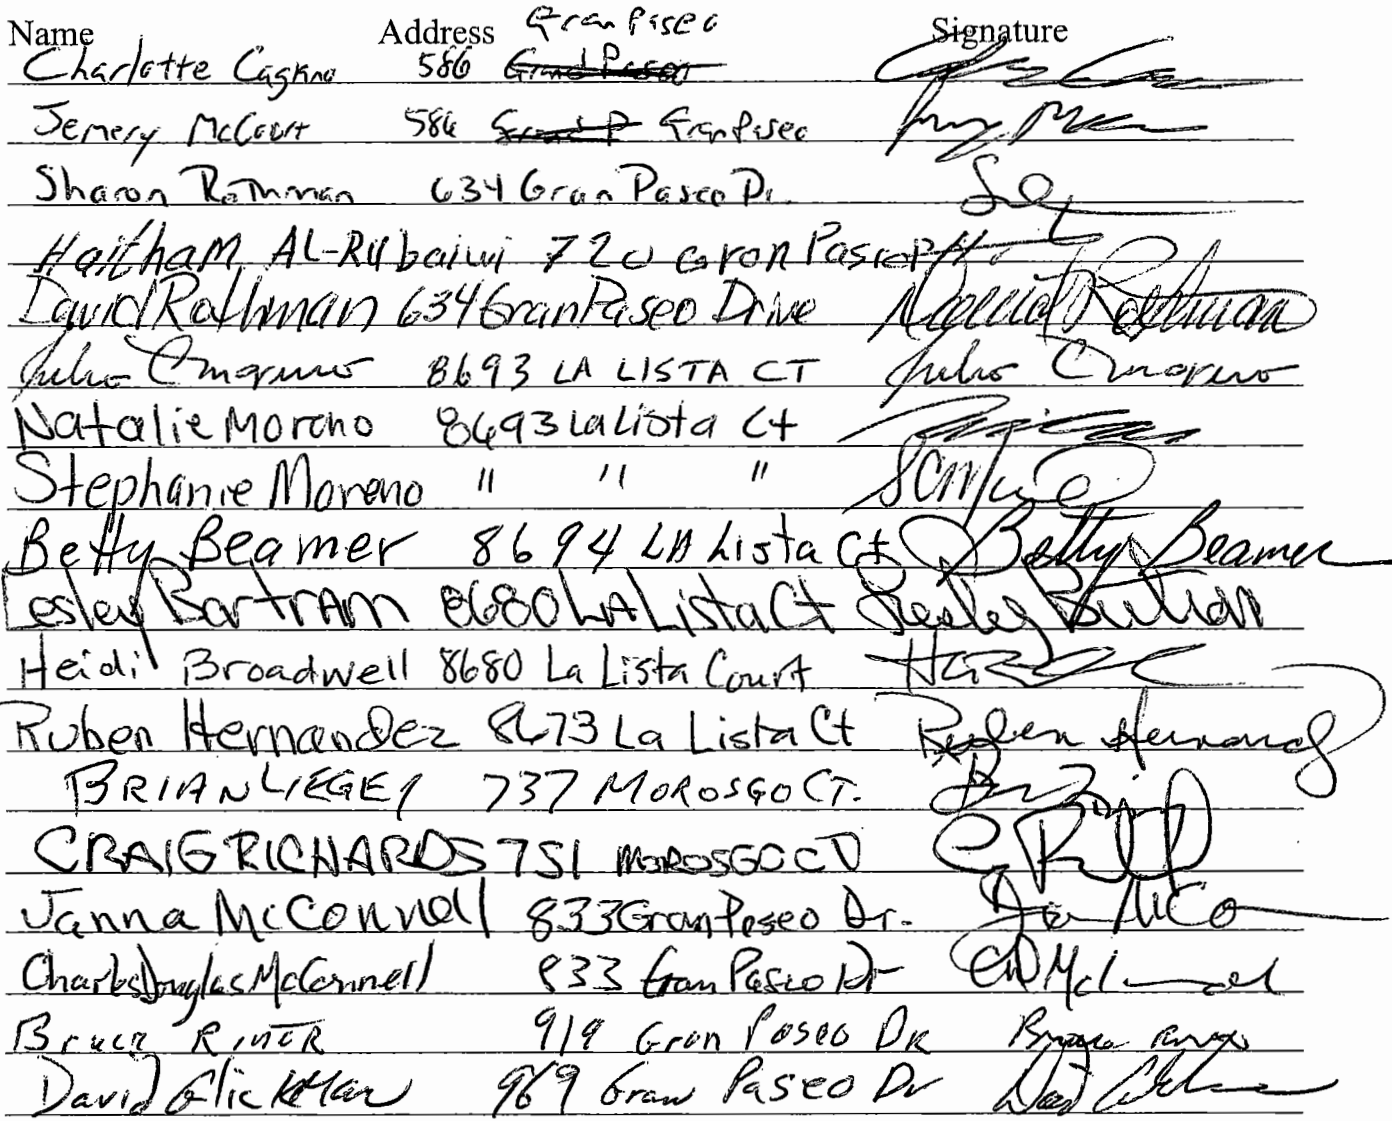 Name Address Gran Paseo Signature
Charlotte Cagkno 586 Grand Paseo
Jemery McCourt 586 Grand P Gran Paseo
Sharon Rothman 634 Gran Paseo Dr.
Haitham AL-Rubaiwi 720 Gran Paseo
David Rothman 634 Gran Paseo Drive David Rothman
Julio C Moreno 8693 LA LISTA CT Julio C Moreno
Natalie Moreno 8693 La Lista Ct
Stephanie Moreno " " "
Betty Beamer 8694 LA Lista Ct Betty Beamer
Lesley Bartram 8680 LA Lista Ct Lesley Bartram
Heidi Broadwell 8680 La Lista Court
Ruben Hernandez 8673 La Lista Ct Ruben Hernandez
BRIAN LIEGEY 737 MOROSGO CT.
CRAIG RICHARDS 751 MOROSGO CT
Janna McConnell 833 Gran Paseo Dr.
Charles Douglas McConnell 833 Gran Paseo Dr
Bruce 919 Gran Paseo DR Bruce
David Glickman 969 Gran Paseo Dr David